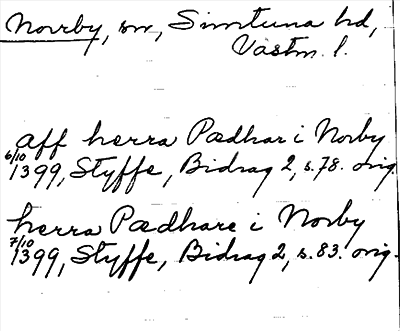 Norrby, sn, Simtuna hd,
Västm. l.
aff herra Pædhar i Norby
6/10 1399, Styffe, Bidrag 2, s. 78. orig.
herra Pædhare i Norby
7/10 1399, Styffe, Bidrag 2, s. 83. orig.